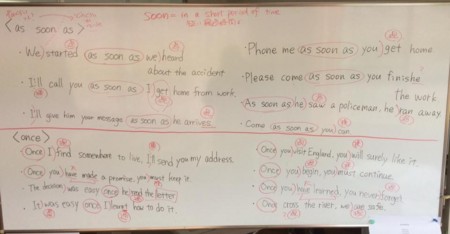 soon = in a short period of time
<as soon as>
· We started as soon as we heard
about the accident
· I'll call you as soon as I get home from work.
· I'll give him your message as soon as he arrives.
· Phone me as soon as you get home
· Please come as soon as you finishe
the work
· As soon as he saw a policeman, he ran away
· Come as soon as you can.
<once>
· Once I find somewhere to live, I'll send you my address.
· Once you have made a promise, you must keep it.
· The decision was easy once he read the letter.
· It was easy once I learnt how to do it.
· Once you visit England, you will surely like it.
· Once you begin, you must continue.
· Once you have learned, you never forget.
· Once cross the river, we are safe.